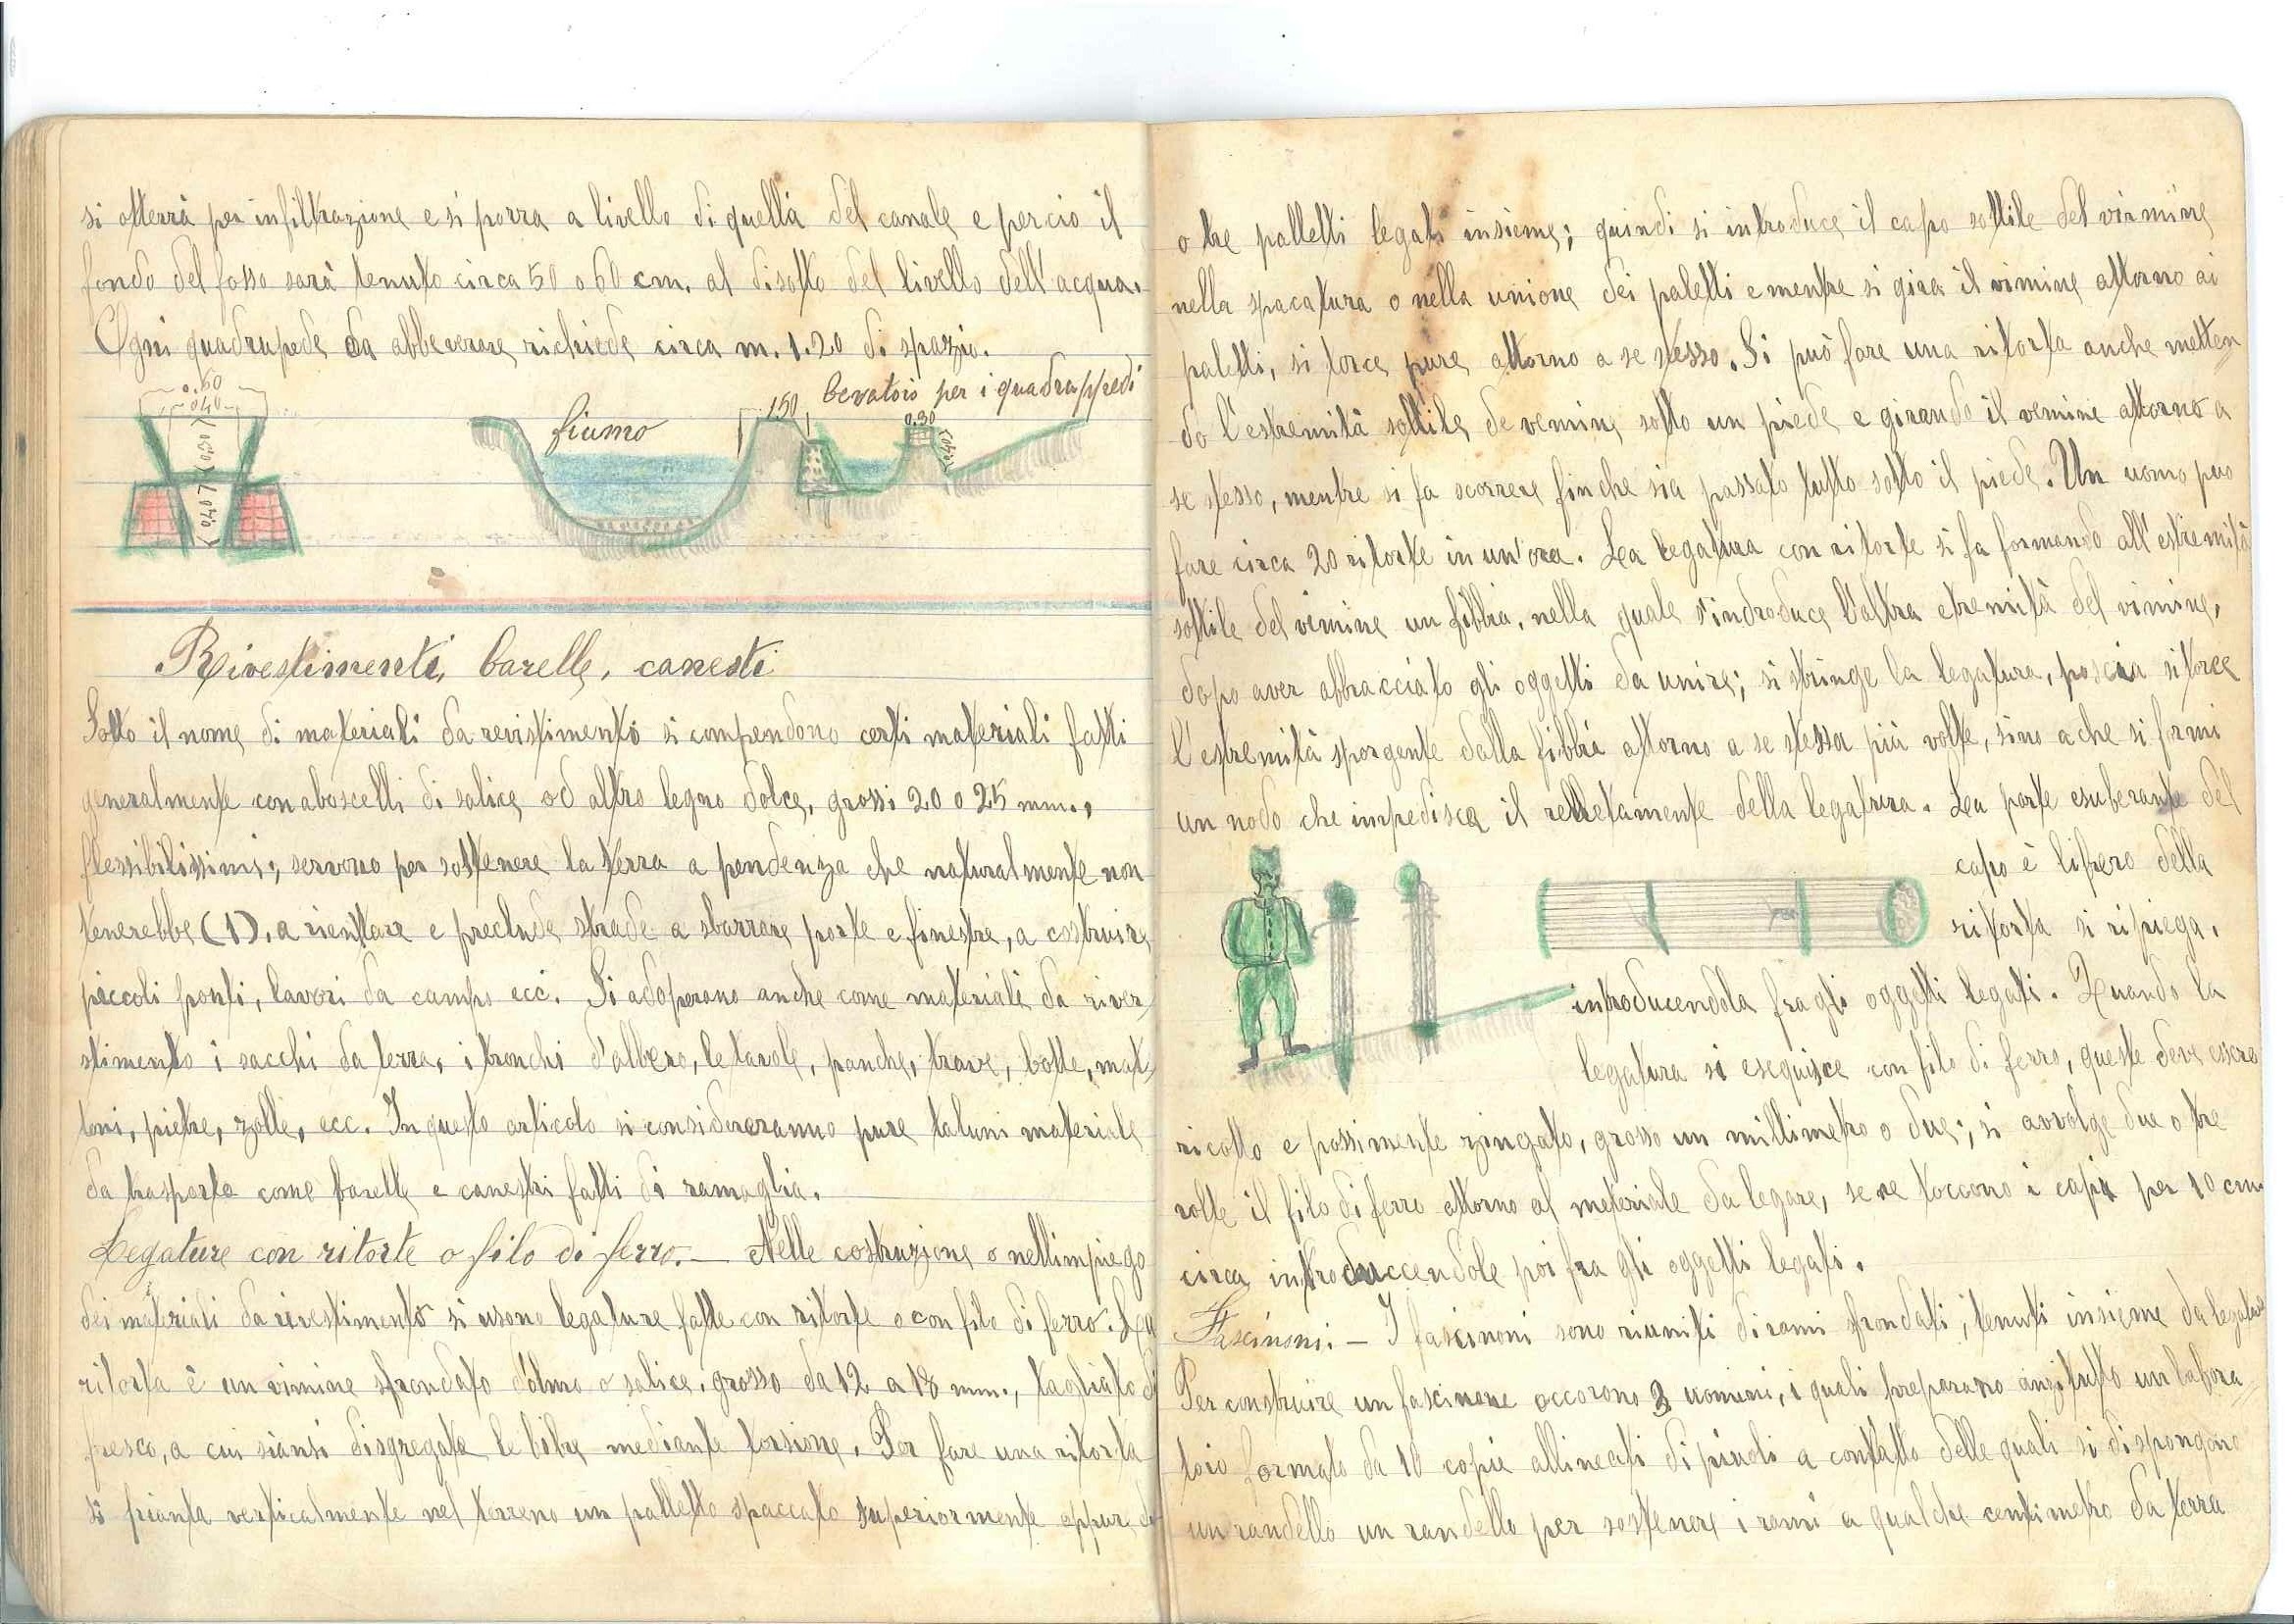 si otterrà per infiltrazione e si porra a livello di quella del canale e percio il
fondo del fosso sarà tenuto circa 50 o 60 cm. al disotto del livello dell'acqua.
Ogni quadrupede da abbeverere richiede circa m. 1.20 di spazio.
0.60
0.40
0.50
0.40
fiumo
1.50
bevatoio per i quadruppedi
0.30
Rivestimenti, barelle, canesti
Sotto il nome di materiali da revistimento si compendono certi materiali fatti
generalmente con aboscelli di salice od altro legno dolce, grossi 20 o 25 mm.,
flessibilissimi, servono per sostenere la terra a pendenza che naturalmente non
tenerebbe (1), a e preclude strade a sbarrare porte e finestre, a costruire
piccoli ponti, lavori da campo ecc. Si adoperano anche come materiale da river
stimento i sacchi da terra, i tronchi d'albero, le tavole, panche, trave, botte, mat-
toni, pietre, zolle, ecc. In questo articolo si considereranno pure taluni materiale
da trasporto come barelle e canestri fatti di ramaglia.
Legature con ritorte o filo di ferro. — Nelle costruzione o nell'impiego
dei materiali da rivestimento si usono legature fatte con ritorte o con filo di ferro. La
ritorta è un vimine sfrondato d'olmo o salice, grosso da 12 a 18 mm., tagliato di
fresco, a cui siansi disgregate le fibre mediante torsione. Per fare una ritorta
si pianta verticalmente nel terreno un palletto spaccato superiormente oppure due
o tre palletti legati insieme; quindi si introduce il capo sottile del vimine
nella spacatura o nella unione dei paletti e mentre si gira il vimine attorno ai
paletti, si torce pure attorno a se stesso. Si può fare una ritorta anche metten
do l'estremità sottile de vemine sotto un piede e girando il vemine attorno a
se stesso, mentre si fa scorrere finche sia passato tutto sotto il piede. Un uomo puo
fare circa 20 ritorte in un'ora. La legatura con ritorte si fa formando all'estremità
sottile del vimine un fibbia, nella quale s'indroduce l'altra etremità del vimine,
dopo aver abbracciato gli oggetti da unire; si stringe la legatura, poscia si torce
l'estremità sporgente dalla fibbia attorno a se stessa più volte, sino a che si formi
un nodo che impedisca il della legatura. La parte esuberante del
capo è libero della
ritorta si ripiega,
introducendola fra gli oggetti legati. Quando la
legatura si eseguisce con filo di ferro, queste deve essere
ricotto e possimente zingato, grosso un millimetro o due; si avvolge due o tre
volte il filo di ferro attorno al meteriale da legare, se ne toccono i capi per 10 cm.
circa introduccendole poi fra gli oggetti legati.
Fascinoni. — I fascinoni sono riuniti di rami sfrondati, tenuti insieme da legature
Per construire un fascinone occorono 3 uomini, i quali preparano anzitutto un labora
toio formato da 10 copie allineati di piuoli a contatto delle quali si dispongono
un randello un randello per sostenere i rami a qualche centimetro da terra